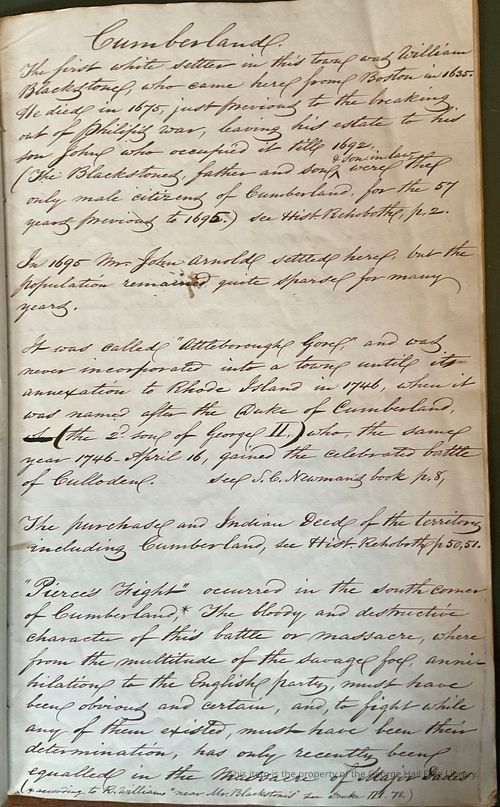 Cumberland.
The first white settler in this town was William
Blackstone, who came here from Boston in 1635.
He died in 1675, just previous to the breaking
out of Philip's war, leaving his estate to his
son John who occupied it till 1692.
& son in law
(The Blackstones, father and son, were the
only male citizens of Cumberland, for the 57
years previous to 1695.) see Hist. Rehoboth, p. 2.
In 1695 Mr. John Arnold settled here, but the
population remained quite sparse for many
years.
It was called "Attleborough Gore," and was
never incorporated into a town until its
annexation to Rhode Island in 1746, when it
was named after the Duke of Cumberland,
(the 2d son of George II.) who, the same
year 1746 - April 16, gained the celebrated battle
of Culloden. see S. C. Newman's book p. 8,
The purchase and Indian Deed of the territory
including Cumberland, see Hist. Rehoboth, p 50, 51.
"Pierce's Fight" ocurred in the south corner
of Cumberland,* The bloody and destructive
character of this battle or massacre, where
from the multitude of the savage foe, anni-
hilation to the English party, must have
been obvious and certain, and, to fight while
any of them existed, must have been their
determination, has only recently been
equalled in the Massacre of Maj. Dades
(*according to R. Williams "near Mr. Blackston's" see 78.)
This item is the property of the George Hail Free Library.